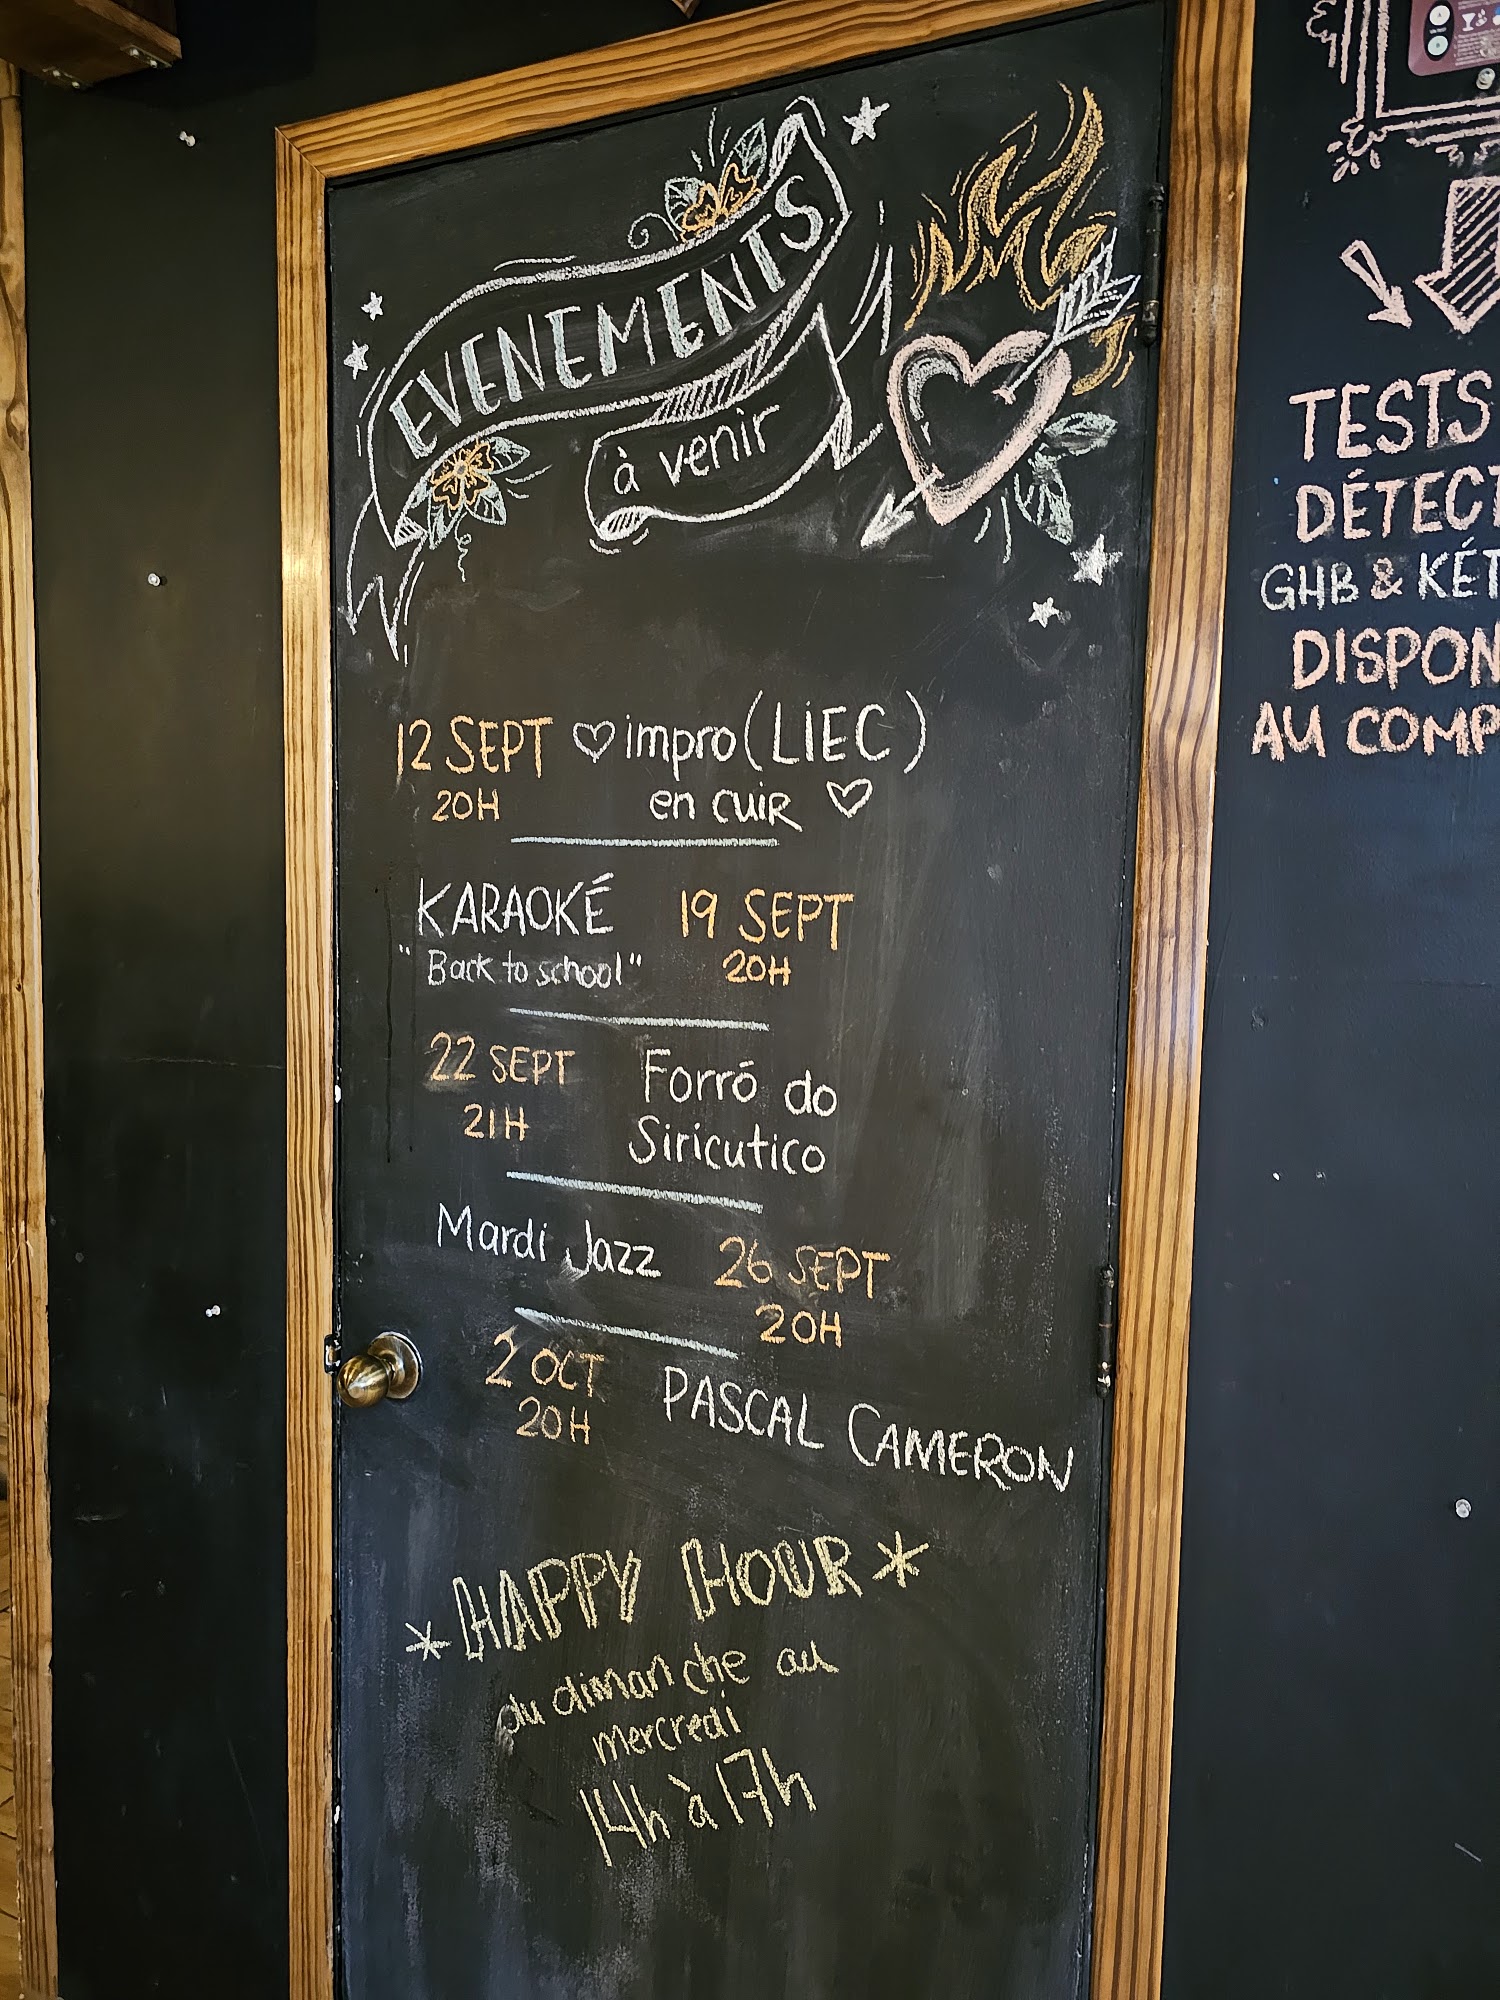 EVENEMENTS
à venir
12 SEPT ♡ impro (LIEC)
20H en cuir ♡
KARAOKÉ 19 SEPT
"Back to school" 20H
22 SEPT Forró do
21H Siricutico
Mardi Jazz 26 SEPT
20H
2 OCT PASCAL CAMERON
20H
*HAPPY HOUR*
du dimanche au
mercredi
14h à 17h
TESTS
DÉTECT
GHB & KÉT
DISPON
AU COMP